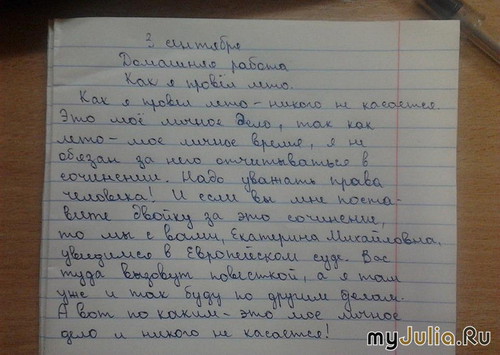 3 сентября
Домашняя работа
Как я провёл лето.
Как я провёл лето - никого не касается.
Это моё личное дело, так как
лето - мое личное время, я не
обязан за него отчитываться в
сочинении. Надо уважать права
человека! И если вы мне поста-
вите двойку за это сочинение,
то мы с вами, Екатерина Михайловна,
увидимся в Европейском суде. Вас
туда вызовут повесткой, а я там
уже и так буду по другим делам.
А вот по каким - это мое личное
дело и никого не касается!
myJulia.Ru